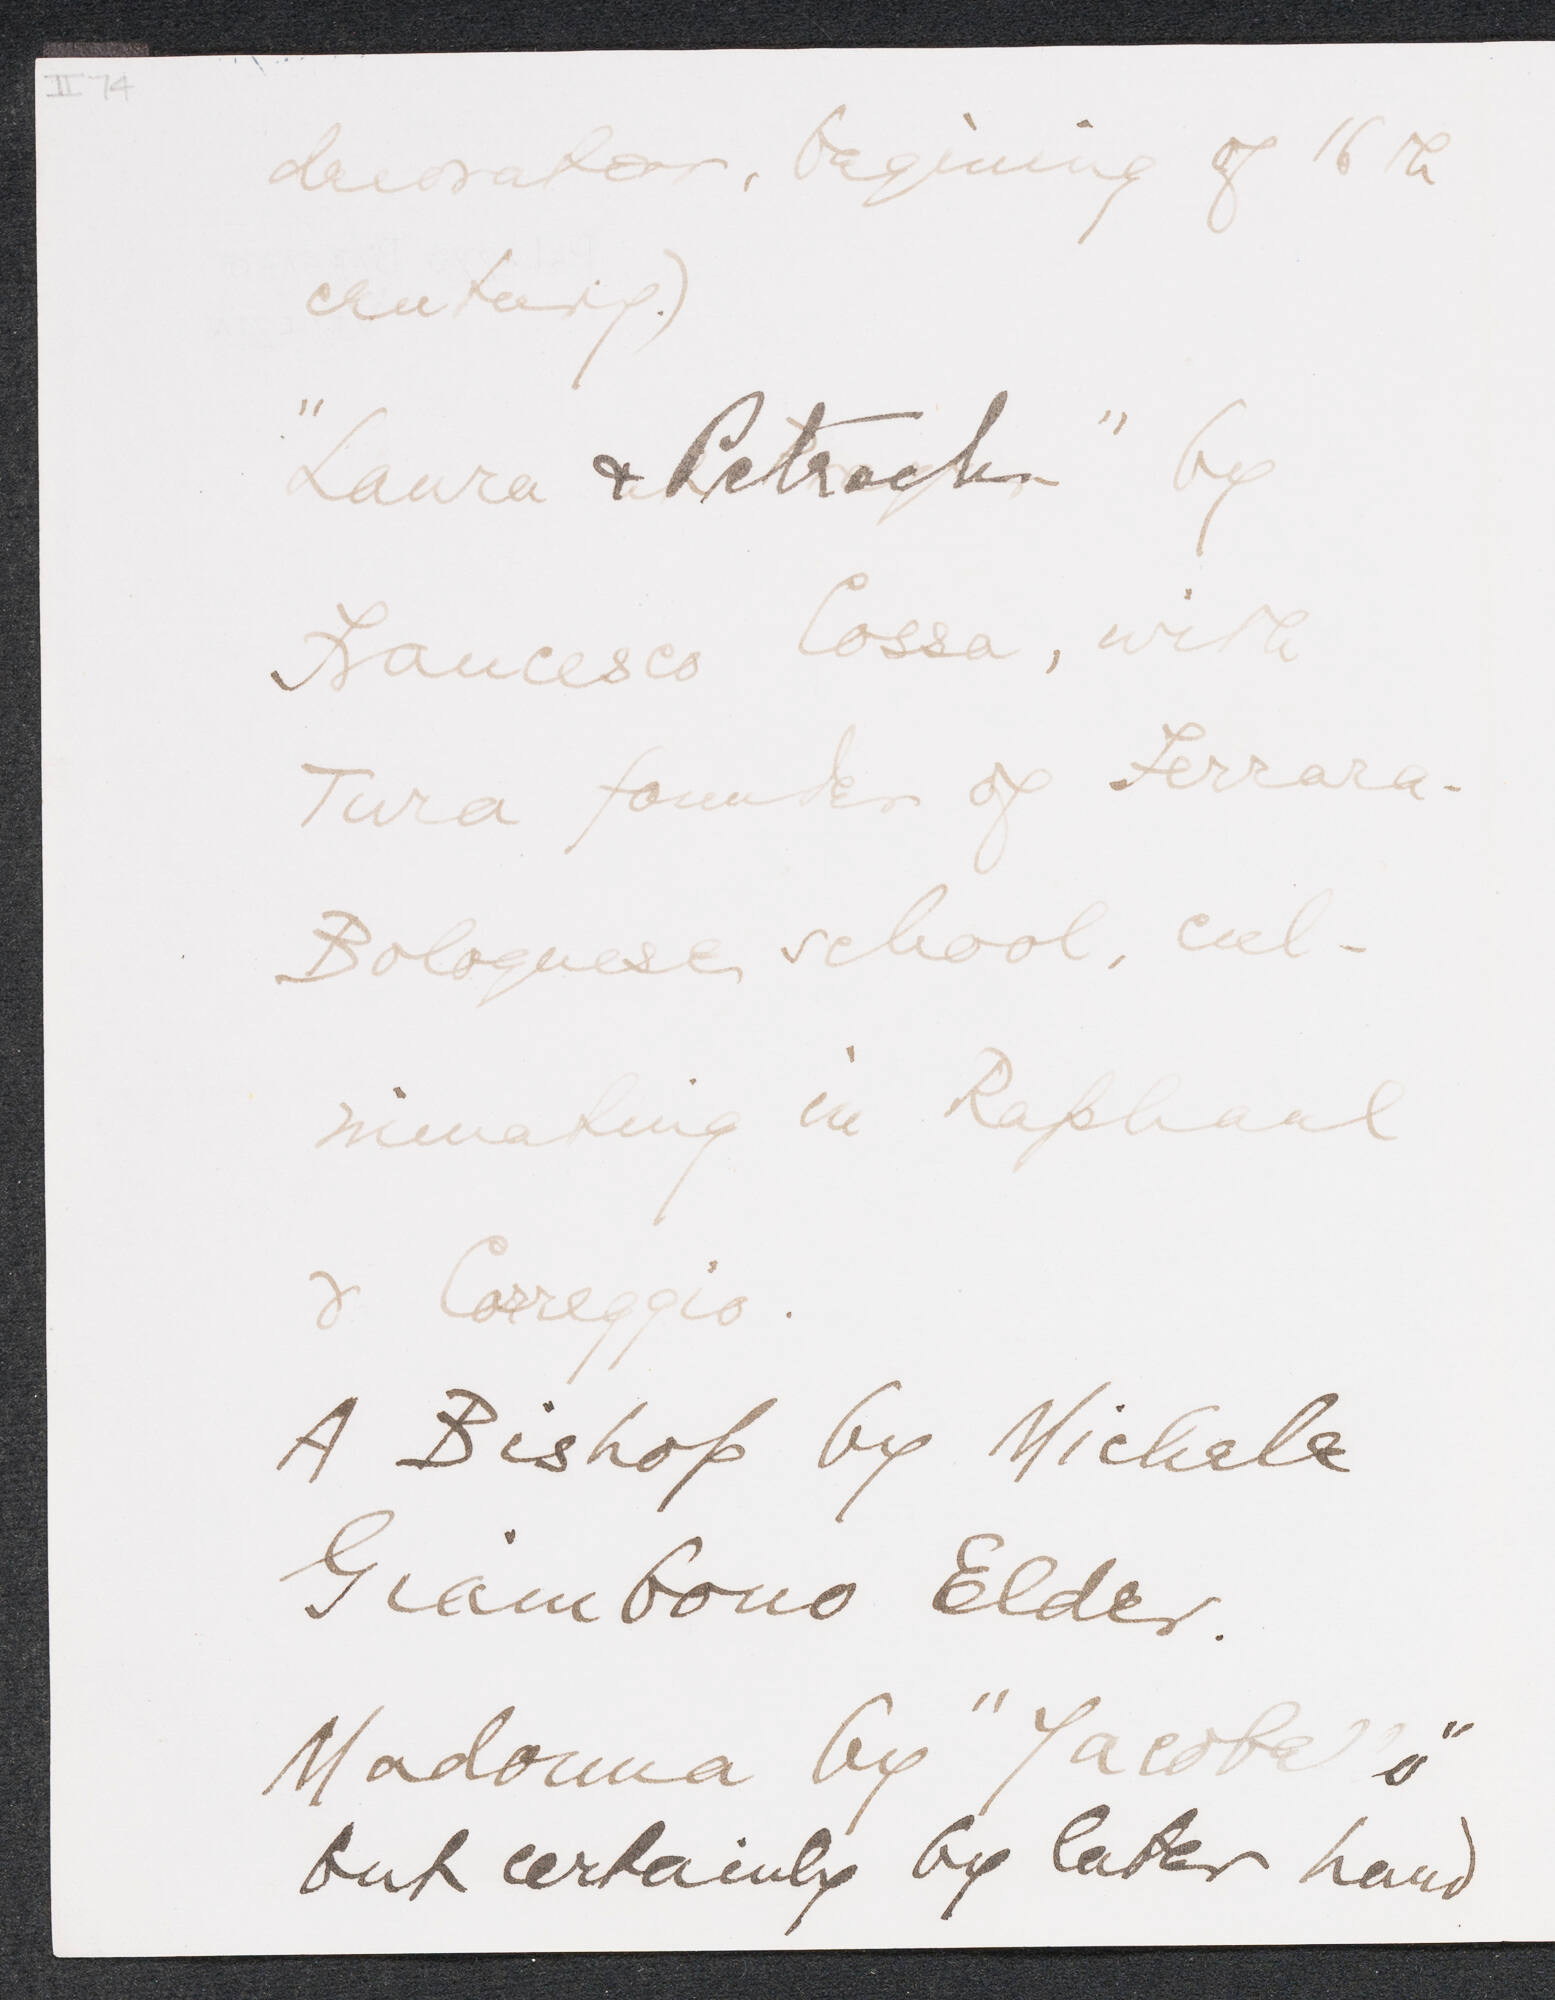 II 74
decorator, begining of 16th
century.)
"Laura & Petrach" by
Francesco Cossa, with
Tura founder of Ferrara-
Bolognese school, cul-
minating in Raphael
& Correggio.
A Bishop by Michele
Giambono Elder.
Madonna by "Jacobello"
but certainly by later hand